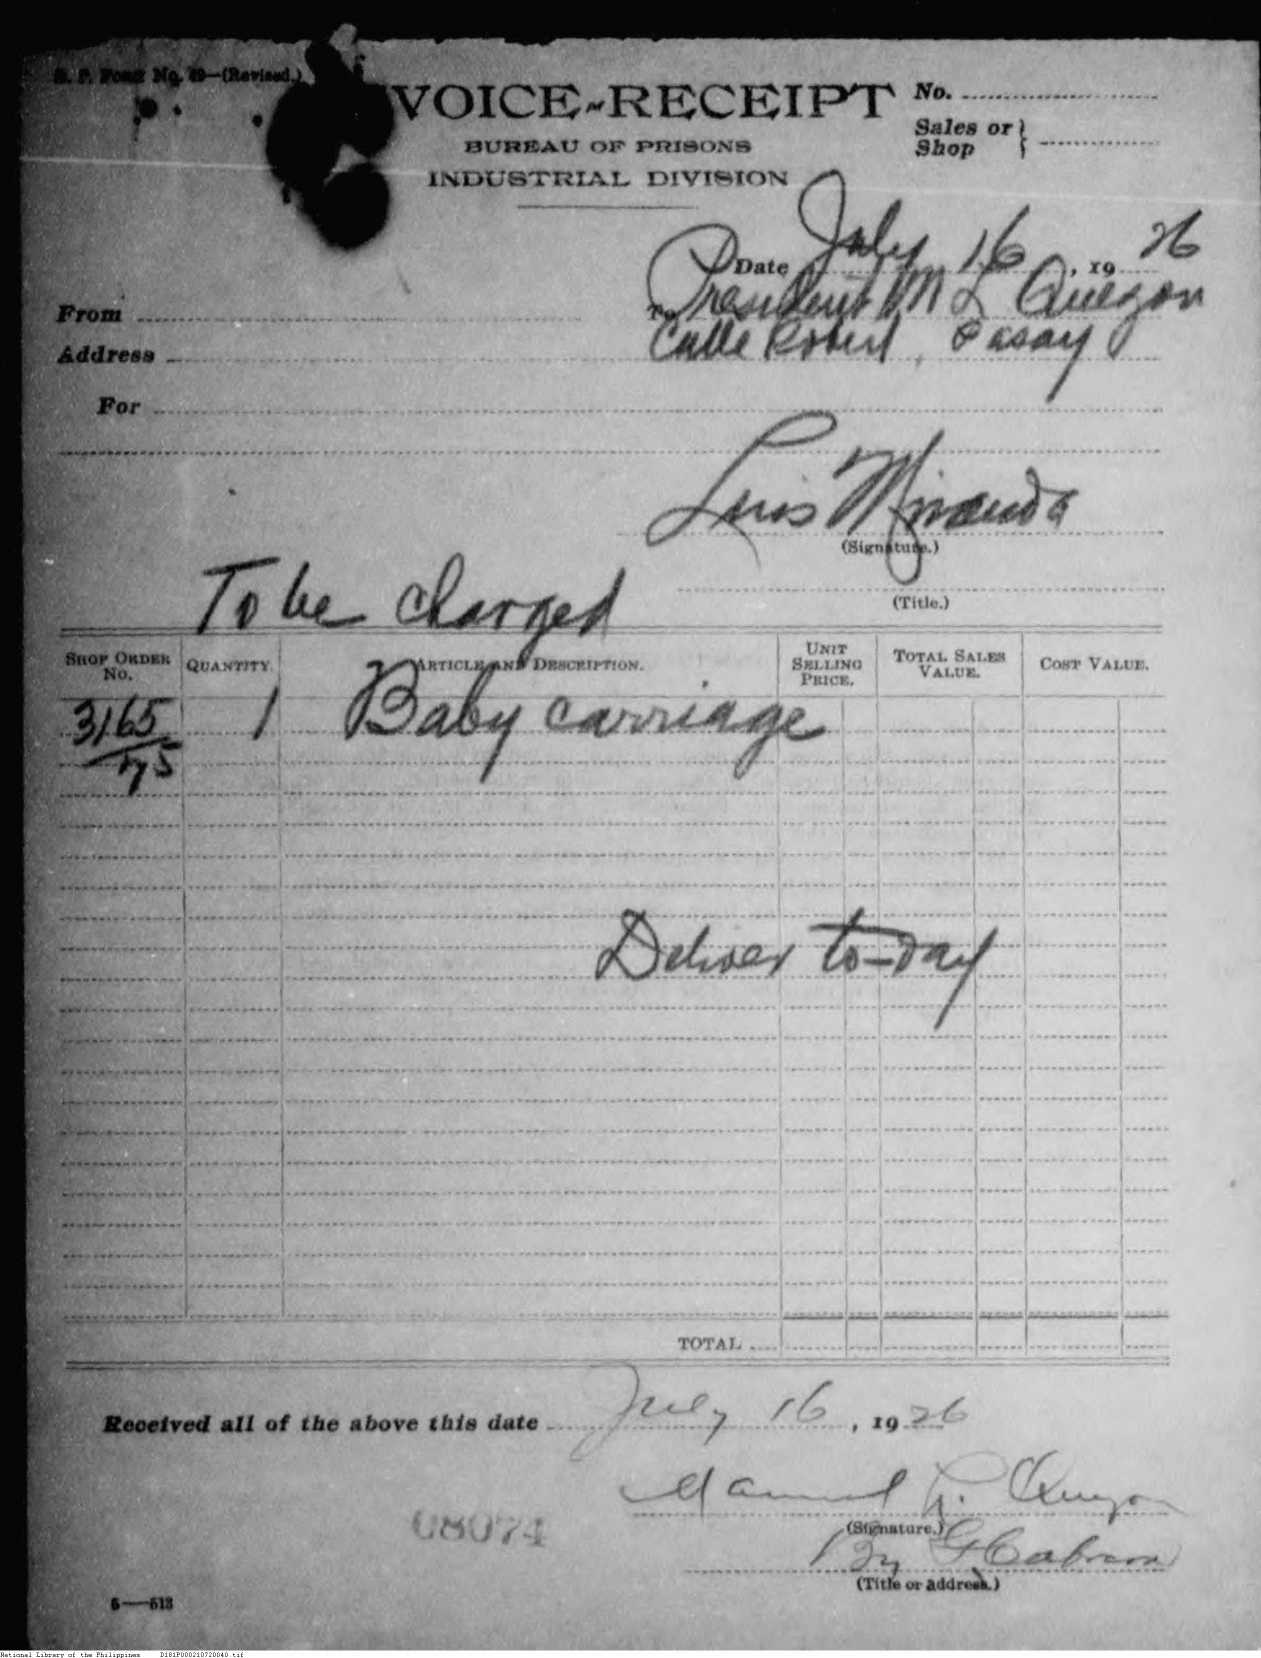 B. P. Form No. 49—(Revised.)
VOICE-RECEIPT
No.
BUREAU OF PRISONS
Sales or
Shop
INDUSTRIAL DIVISION
Date July 16, 1926
From
To President M L Quezon
Address
Calle Robert, Pasay
For
Luis Miranda
(Signature.)
(Title.)
To be charged
SHOP ORDER NO. QUANTITY. ARTICLE AND DESCRIPTION. UNIT SELLING PRICE. TOTAL SALES VALUE. COST VALUE.
3165 1 Baby carriage
Deliver to-day
TOTAL
Received all of the above this date July 16, 1926
Manuel L. Quezon
(Signature.)
08074
By G Cabrera
(Title or address.)
6—613
National Library of the Philippines D181P000210720040.tif